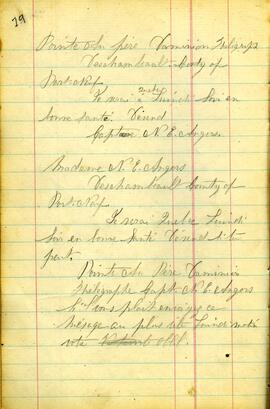 29
Pointe au père Dominion Telegraph
Deschambault County of
Portneuf
Je serai à Québec Lundi Soir en
bonne santé.
Captain N. E. Angers.
Madame N. E. Angers
Deschambault County of
Portneuf
Je serai Québec Lundi
Soir en bonne Santé
part.
Pointe au Père Dominion
Thelegraphe Capt. N. E. Angers
S'il vous plait envoyez ce
Mésage au plus tôt Lundi matin
votre obli.